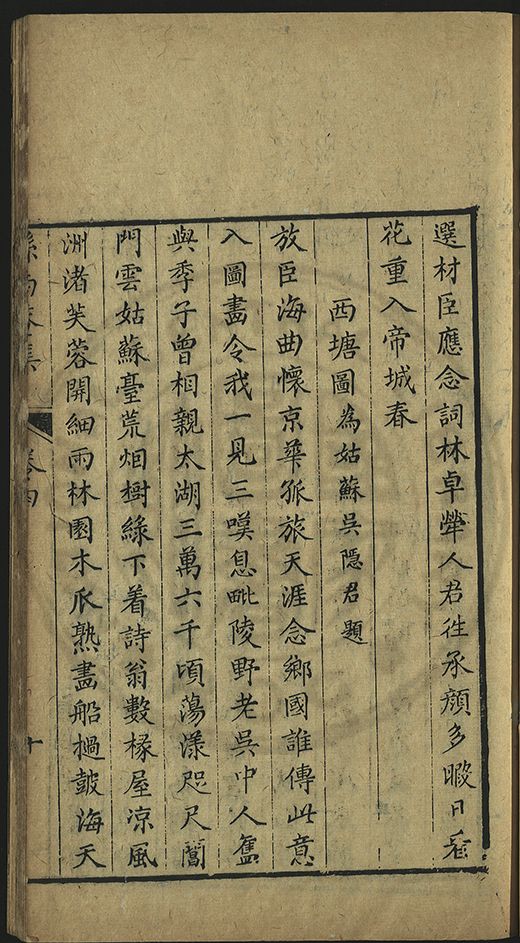 選材臣應念詞林卓犖人君徃承顔多暇日看
花重入帝城春
西塘圖為姑蘇吳隱君題
放臣海曲懷京華孤旅天涯念鄉國誰傳此意
入圖畫令我一見三嘆息毗陵野老吳中人舊
與季子曾相親太湖三萬六千頃蕩漾咫尺閶
門雲姑蘇臺荒烟樹綠下着詩翁數椽屋凉風
洲渚芙蓉開細雨林園木瓜熟畫船撾鼓海天
孫西菴集 卷四 十